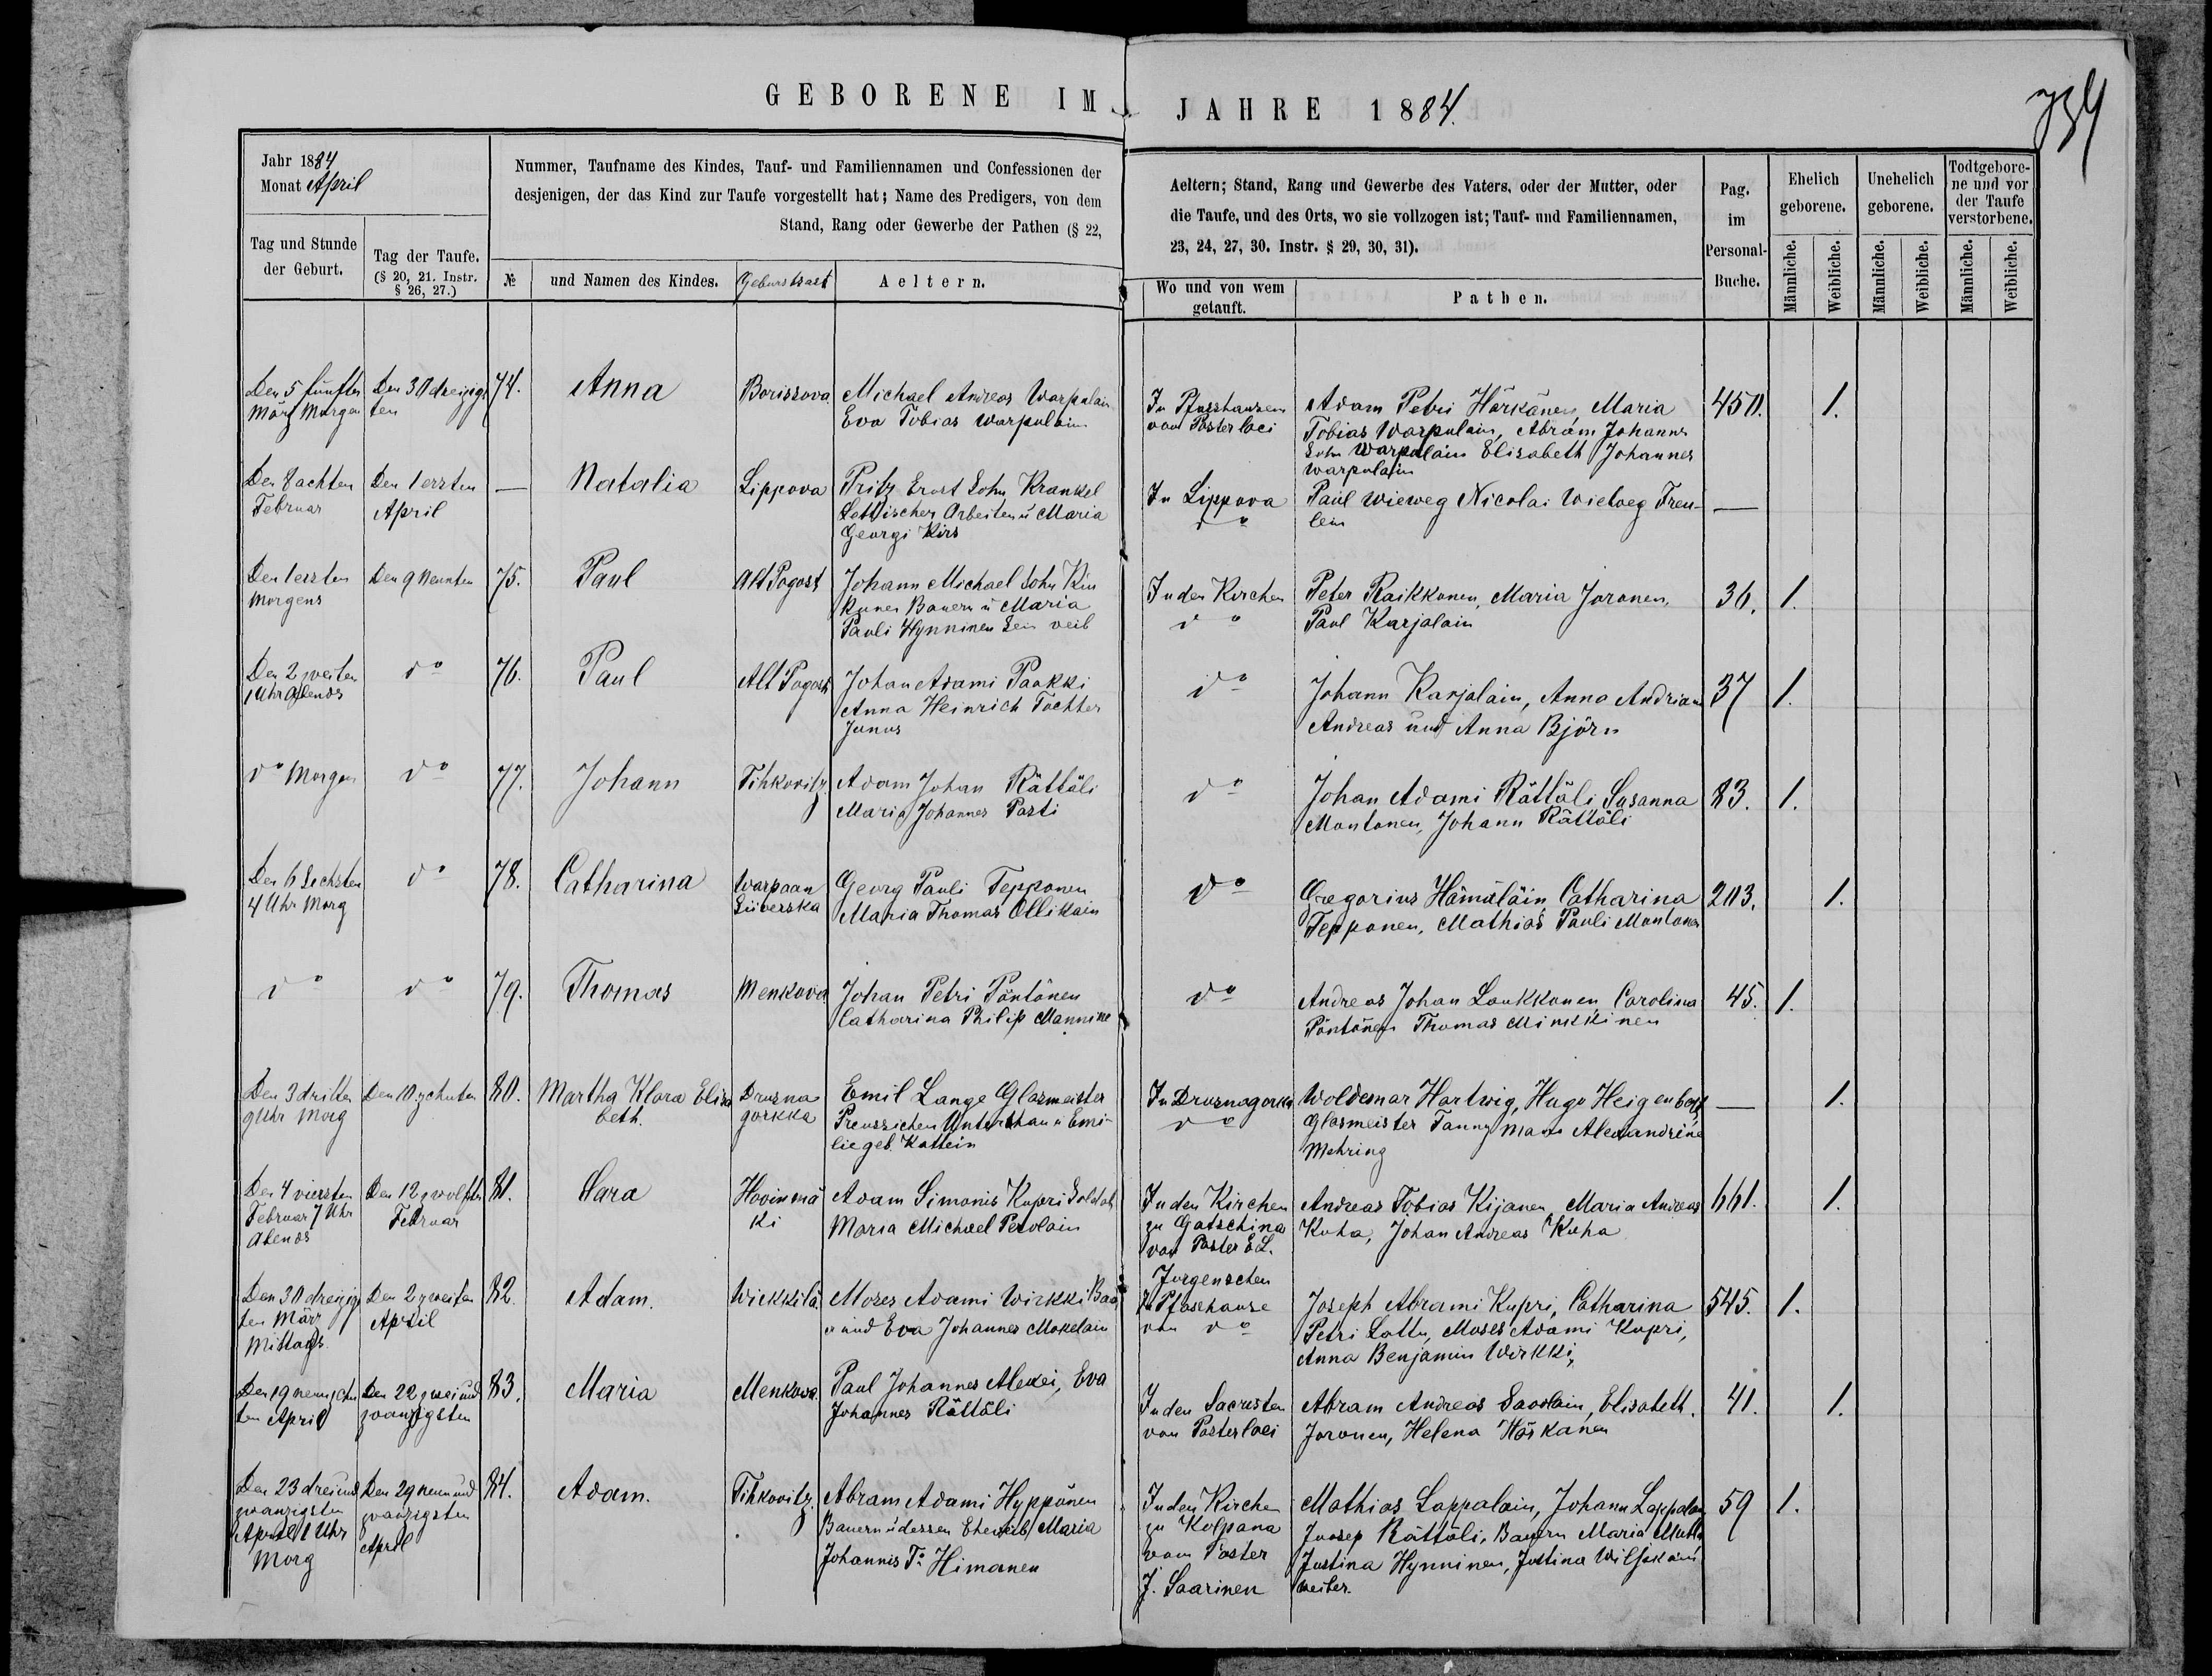 GEBORENE IM JAHRE 1884.
734
Jahr 1884
Monat April
Nummer, Taufname des Kindes, Tauf- und Familiennamen und Confessionen der
desjenigen, der das Kind zur Taufe vorgestellt hat; Name des Predigers, von dem
Stand, Rang oder Gewerbe der Pathen (§ 22,
Aeltern; Stand, Rang und Gewerbe des Vaters, oder der Mutter, oder
die Taufe, und des Orts, wo sie vollzogen ist; Tauf- und Familiennamen,
23, 24, 27, 30. Instr. § 29, 30, 31).
Pag.
im
Personal-
Buche.
Ehelich
geborene.
Unehelich
geborene.
Todtgebore-
ne und vor
der Taufe
verstorbene.
Tag und Stunde
der Geburt.
Tag der Taufe.
(§ 20, 21. Instr.
§ 26, 27.)
№
und Namen des Kindes.
Geburtsort
Aeltern.
Wo und von wem
getauft.
Pathen.
Männliche.
Weibliche.
Männliche.
Weibliche.
Männliche.
Weibliche.
Den 5 fünften
März Morgen
Den 30 dreizigs
ten
74.
Anna
Borissova
Michael Andreas Warpulain
Eva Tobias Warpulain
In Pfasshausen
von Paster loci
Adam Petri Härkänen, Maria
Tobias Warpulain, Abram Johannes
Sohn Warpulain Elisabeth Johannes
Warpulain
450.
1.
Den 8 achten
Februar
Den 1 ersten
April
—
Natalia
Lippova
Fritz Ernst Sohn Krankel
Lettischer Arbeiter u Maria
Georgi Kirs
In Lippova
do
Paul Wieweg Nicolai Wieweg Freu-
lein
—
Den 1 ersten
Morgens
Den 9 Neunten
75.
Paul
Alt Pogost
Johann Michael Sohn Kin
Bauern u Maria
Pauli Hynninen Sein veib
In den Kirchen
do
Peter Raikkonen, Maria Joronen,
Paul Karjalain
36.
1.
Den 2 zweiten
1 Uhr Abends
do
76.
Paul
Alt Pogost
Johan Adami Paakki
Anna Heinrich Tochter
Junus
do
Johann Karjalain, Anna Andrian
Andreas und Anna Björn
37
1.
do Morgen
do
77.
Johann
Tihkovitz
Adam Johan Rättäli
Maria Johannes Pasti
do
Johan Adami Rättäli, Susanna
Montonen, Johann Rättäli
83.
1.
Den 6 Sechsten
4 Uhr Morg
do
78.
Catharina
Warpaan
Siiverska
Georg Pauli Tepponen
Maria Thomas Ollikain
do
Gregorius Hämäläin, Catharina
Tepponen, Mathias Pauli Montonen
203.
1.
do
do
79.
Thomas
Menkova
Johan Petri Pöntönen
Catharina Philip Mannine
do
Andreas Johan Laukkanen, Carolina
Pöntönen Thomas Minkkinen
45.
1.
Den 3 dritten
9 Uhr Morg
Den 10 zehnten
80.
Martha Klara Elisa
beth.
Drusna
gorkka
Emil Lange Glasmeister
Preussichen Unterthan u Emi-
lie geb. Kattein
In Drusnagorka
do
Woldemar Hartwig, Hugo Heigenberg
Glasmeister Fanny Alexandrine
Mehring
—
1.
Den 4 viersten
Februar 7 Uhr
Abends
Den 12 zwolften
Februar
81.
Sara
Hovinmä
ki
Adam Simonis Kupri Soldat
Maria Michael Pesolain
In den Kirchen
zu Gatschina
von Paster E. L.
Jorgenschen
Andreas Tobias Kijanen, Maria Andreas
Kuha, Johan Andreas Kuha
661.
1.
Den 30 dreizigs
ten März
Mittags.
Den 2 zweiten
April
82.
Adam.
Wirkkilä
Moses Adami Wirkki
und Eva Johannes Mokelain
In Pfasehause
von do
Joseph Abrami Kupri, Catharina
Petri Lattu, Moses Adami Kupri,
Anna Benjamin Wirkki,
545.
1.
Den 19 neunzehn
ten April
Den 22 zweiund
zwanzigsten
83.
Maria
Menkova.
Paul Johannes Alexei, Eva
Johannes Rättäli
In den Sacristen
von Paster loci
Abram Andreas Savolain, Elisabeth
Joronen, Helena Härkänen
41.
1.
Den 23 dreiund
zwanzigsten
April 1 Uhr
Morg
Den 29 neunund
zwanzigsten
April
84.
Adam.
Tihkovitz.
Abram Adami Hyppönen
Bauern u dessen Eheweib Maria
Johannis T. Himanen
In den Kirchen
zu Kolpana
vom Paster
J. Saarinen
Mathias Lappalain, Johann Lappalain
Joosep Rättäli, Bauern Maria
Justina Hynninen, Justina
weiber.
59
1.